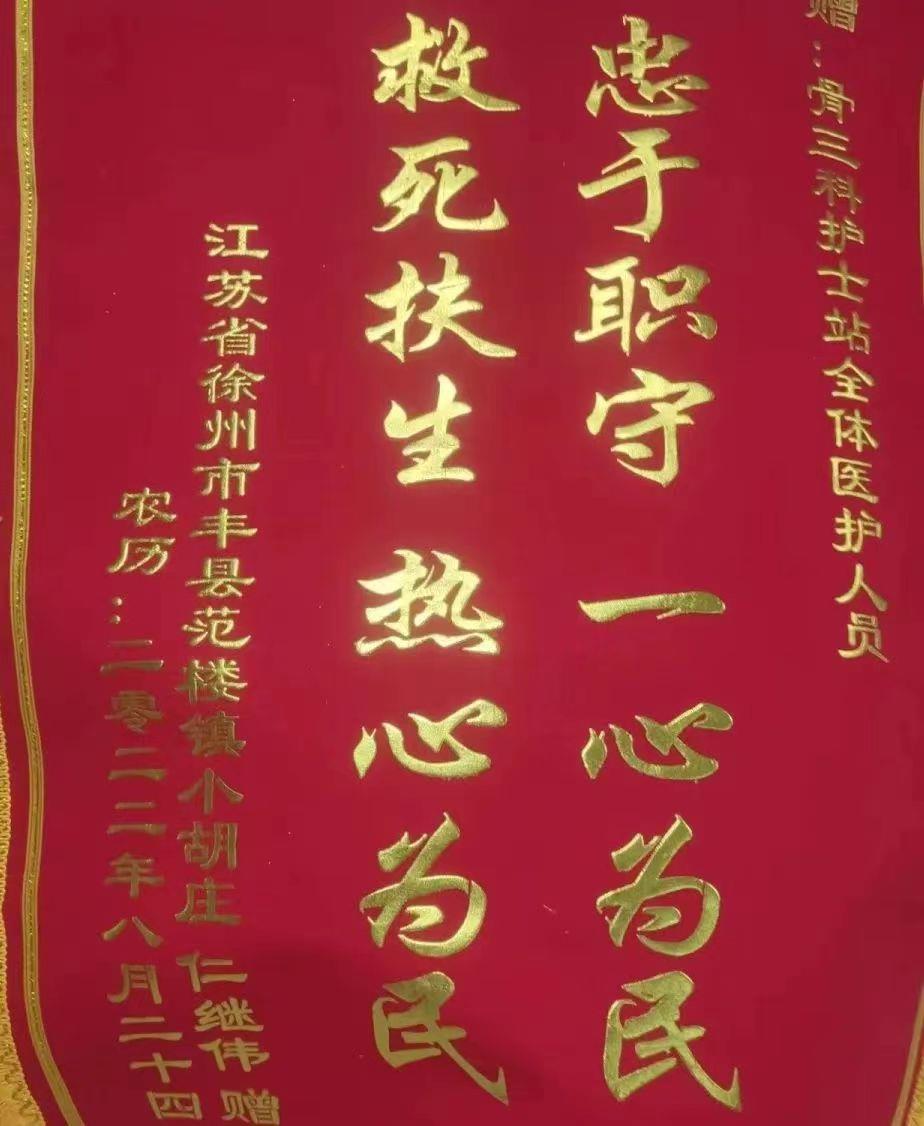 赠：骨三科护士站全体医护人员
忠于职守 一心为民
救死扶生 热心为民
江苏省徐州市丰县范楼镇小胡庄 仁继伟 赠
农历：二零二二年八月二十四